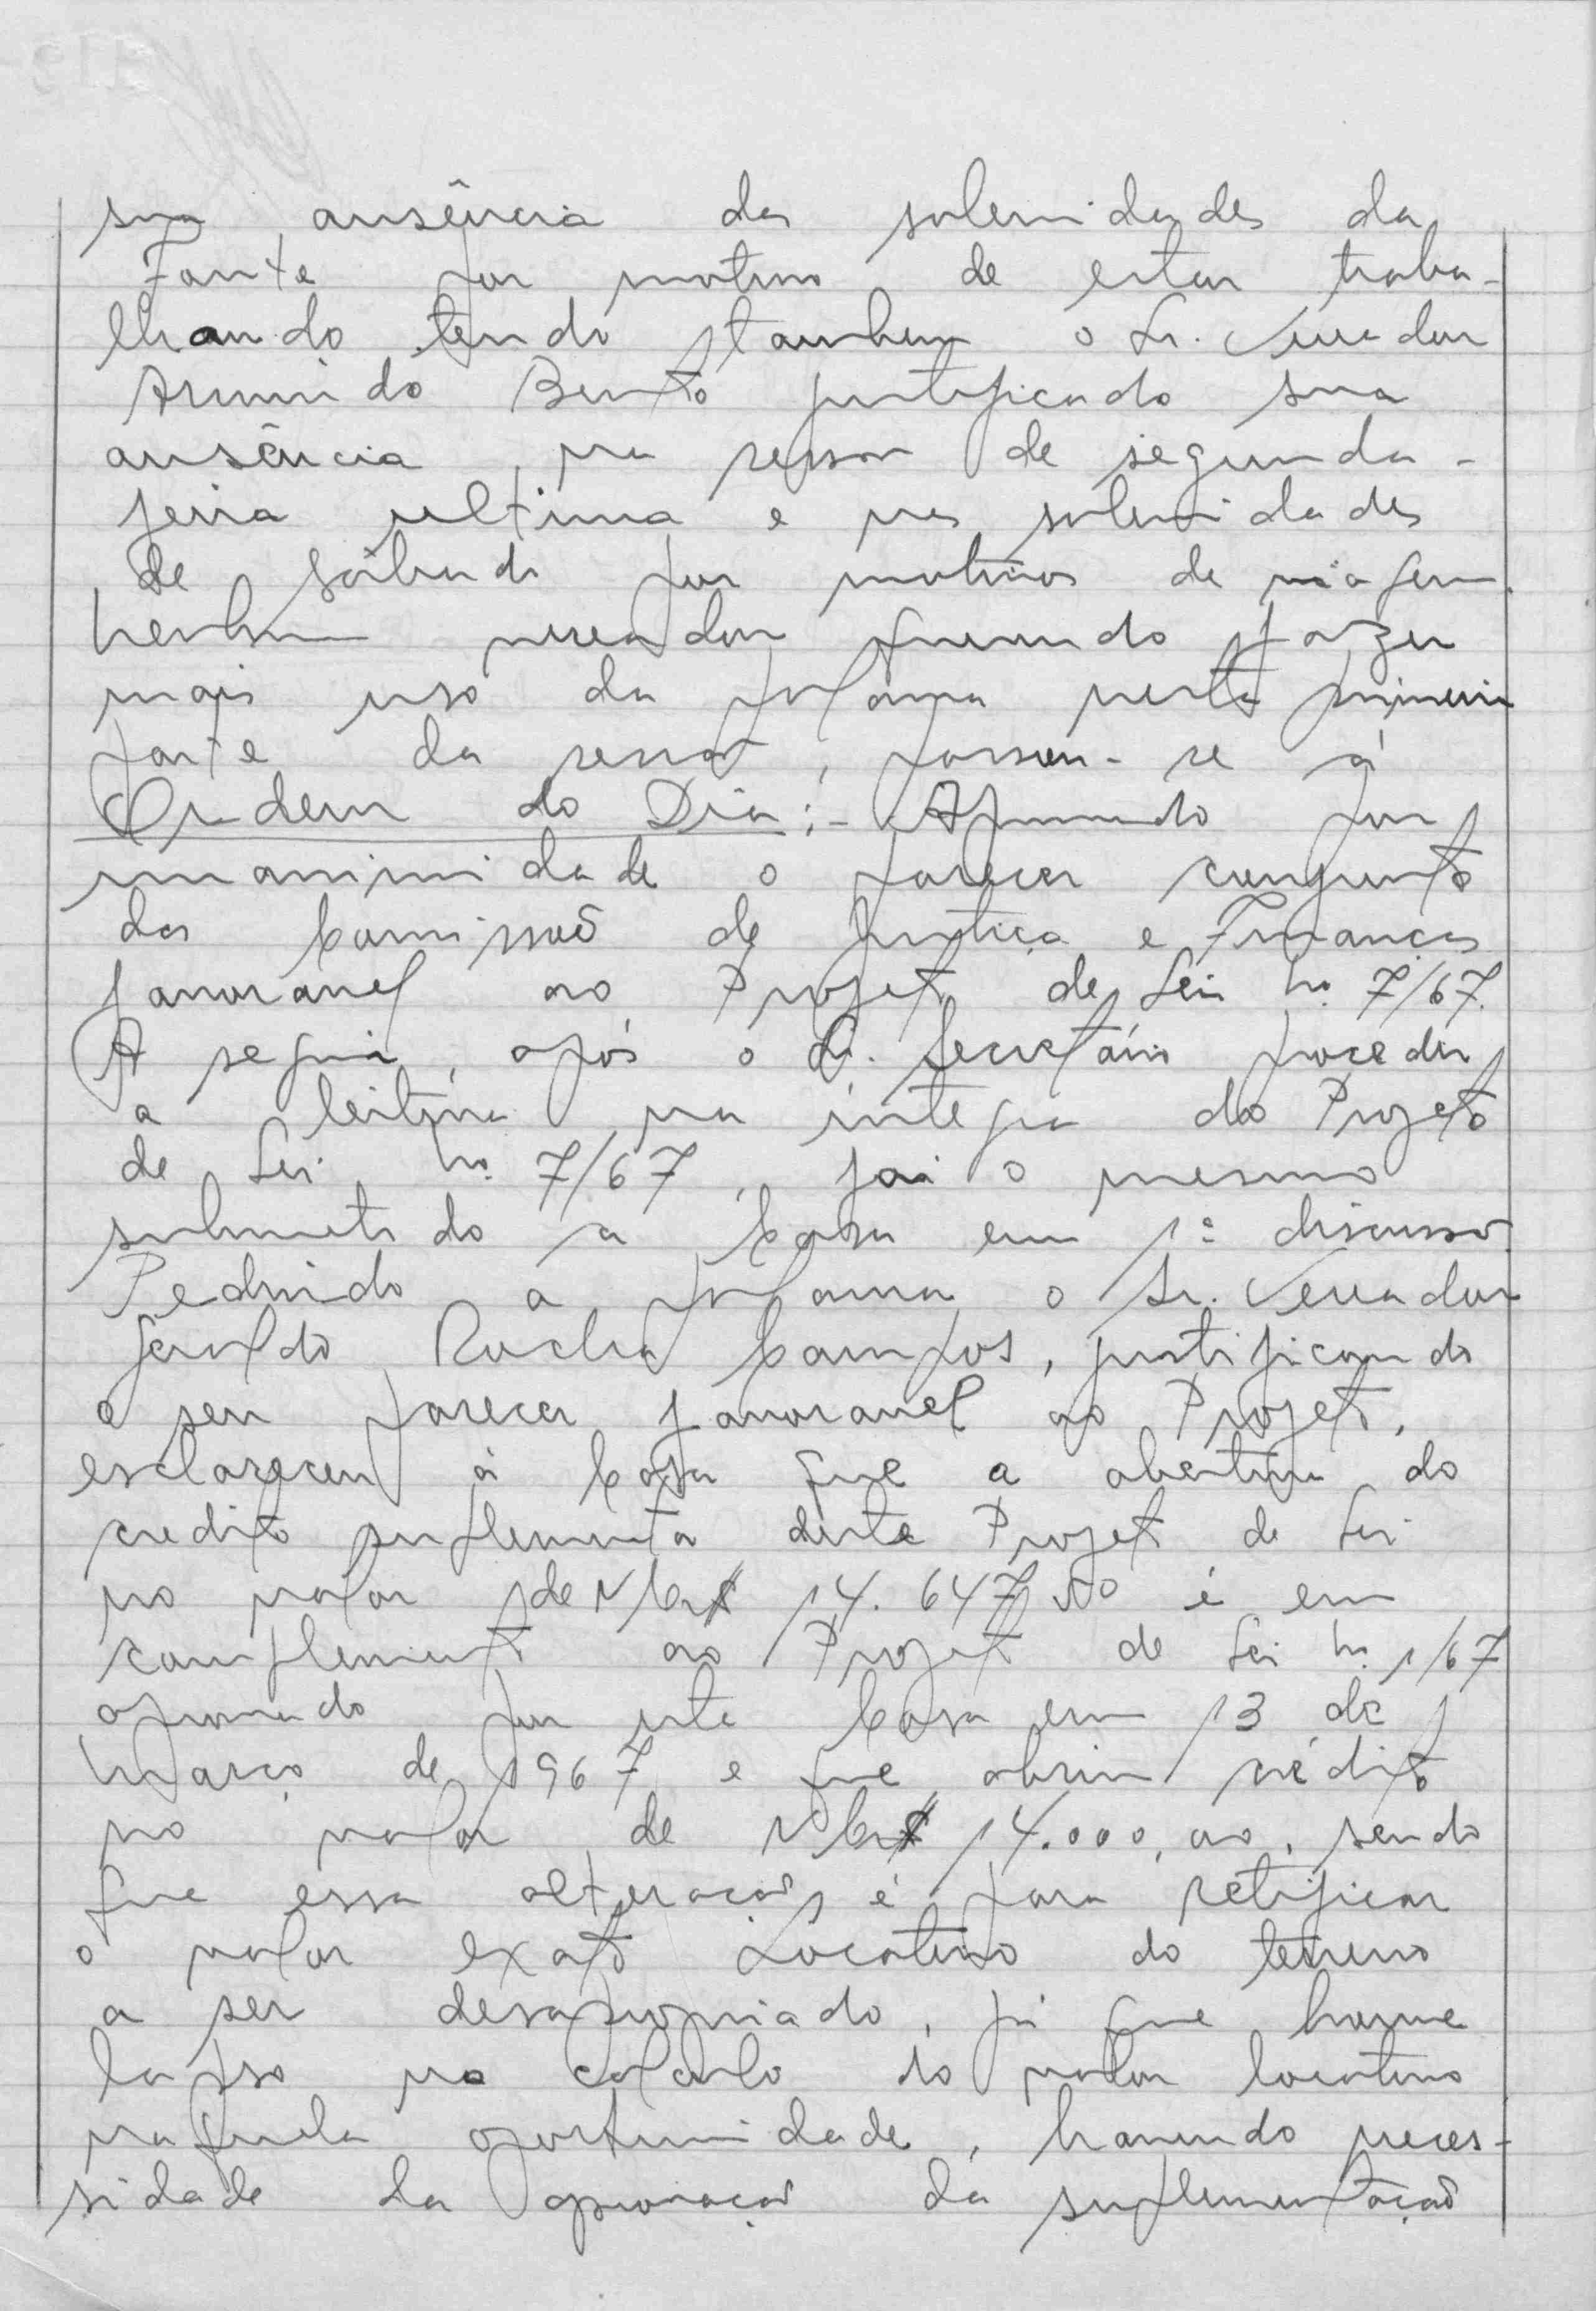 sua ausência das solenidades da
Fonte por motivo de estar traba-
lhando tendo tambem o Sr. Vereador
Armindo Bento justificado sua
ausência, na sessão de segunda-
feira ultima e nas solenidades
de sábado por motivos de viagem.
Nenhum vereador querendo fazer
mais uso da palavra nesta primeira
parte da sessão, passou-se á
Ordem do Dia:- Aprovado por
unanimidade o parecer conjunto
das Comissão de Justiça e Finanças
favoravel ao Projeto de Lei nº 7/67.
A seguir, após o Sr. Secretário proceder
a leitura na integra do Projeto
de Lei nº 7/67, foi o mesmo
submetido a Casa em 1ª discussão.
Pedindo a palavra o Sr. Vereador
Geraldo Rocha Campos, justificando
o seu parecer favoravel ao Projeto,
esclareceu á Casa que a abertura do
credito suplementar deste Projeto de Lei
no valor de NCr$ 14.647,50 é em
complemento ao Projeto de Lei nº 1/67
aprovado por esta Casa em 13 de
Março de 1967 e que abriu crédito
no valor de NCr$ 14.000,00, sendo
que essa alteração é para retificar
o valor exato Locativo do terreno
a ser desapropriado, já que houve
lapso no calculo do valor locativo
naquela oportunidade, havendo neces-
sidade da aprovação da suplementação